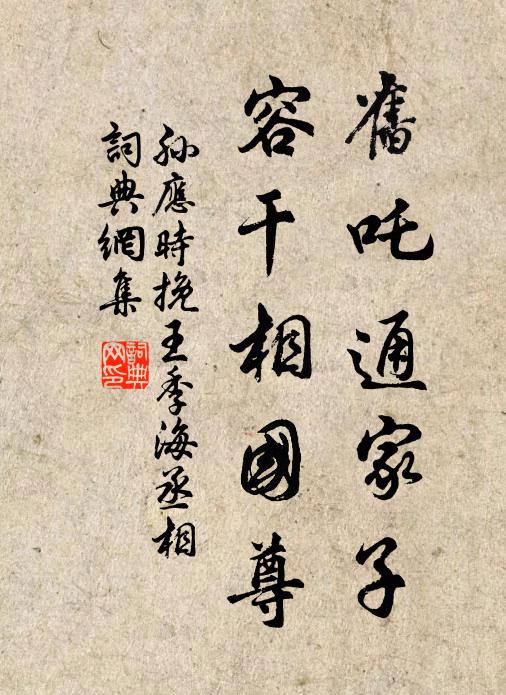 舊吒通家子
容干相國尊
孙應時挽王季海丞相
詞典網集
詞典网印